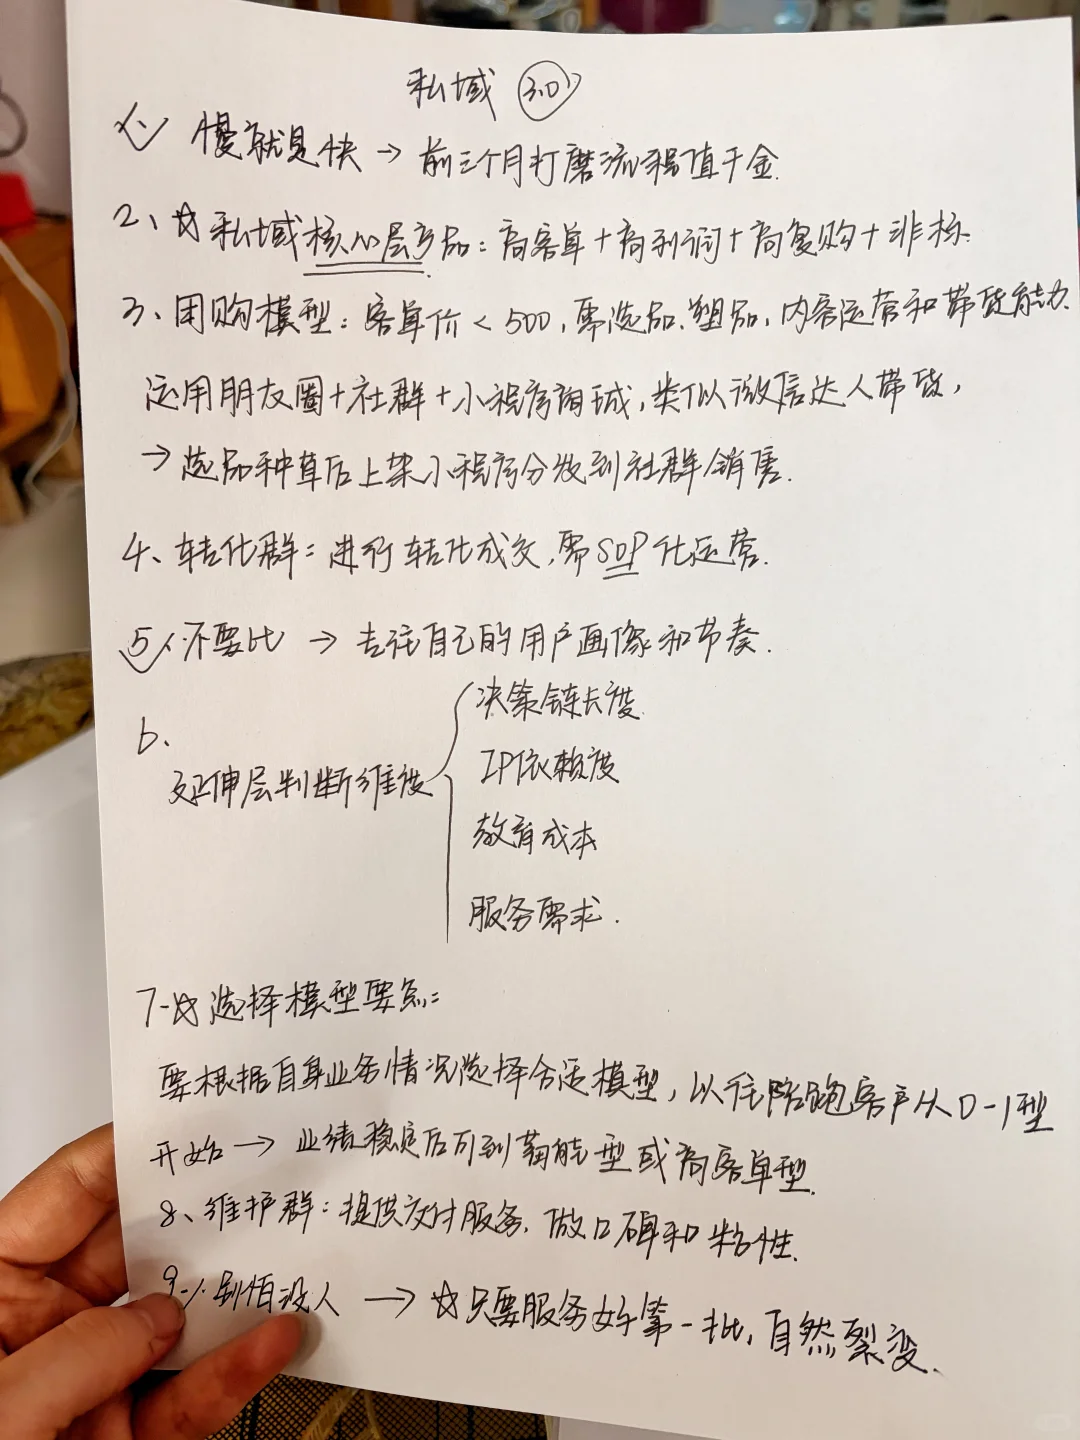 私域 3.0
1、慢就是快→前三个月打磨流程值千金.
2、☆私域核心层产品:高客单+高利润+高复购+非标.
3、团购模型:客单价<500,需选品、塑品,内容运营和带货能力.
运用朋友圈+社群+小程序商城,类似微信达人带货,
→选品种草后上架小程序分发到社群销售.
4、转化群:进行转化成交,需SOP化运营.
5、不要比→专注自己的用户画像和节奏.
6、
延伸层判断维度
决策链长度
IP依赖度
教育成本
服务需求.
7、☆选择模型要点:
要根据自身业务情况选择合适模型,以往陪跑客户从0-1型
开始→业绩稳定后可到 能型或高客单型.
8、维护群:提供交付服务.做口碑和粘性.
9、别怕没人→☆只要服务好第一批,自然裂变.